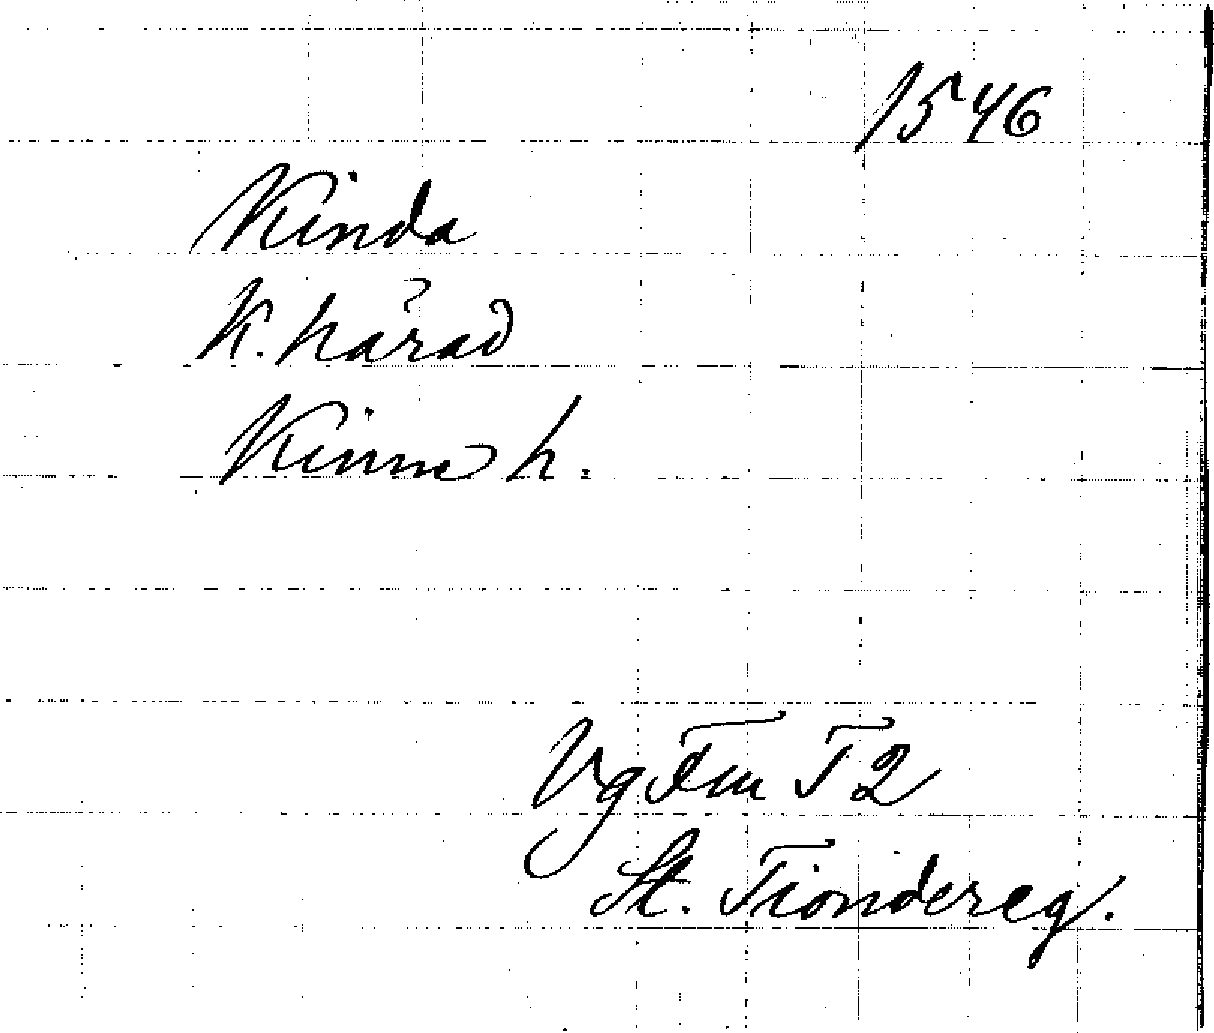 1546
Kinda
K. härad
Kinne h.
Vg Fm T 2
St. Tiondereg.